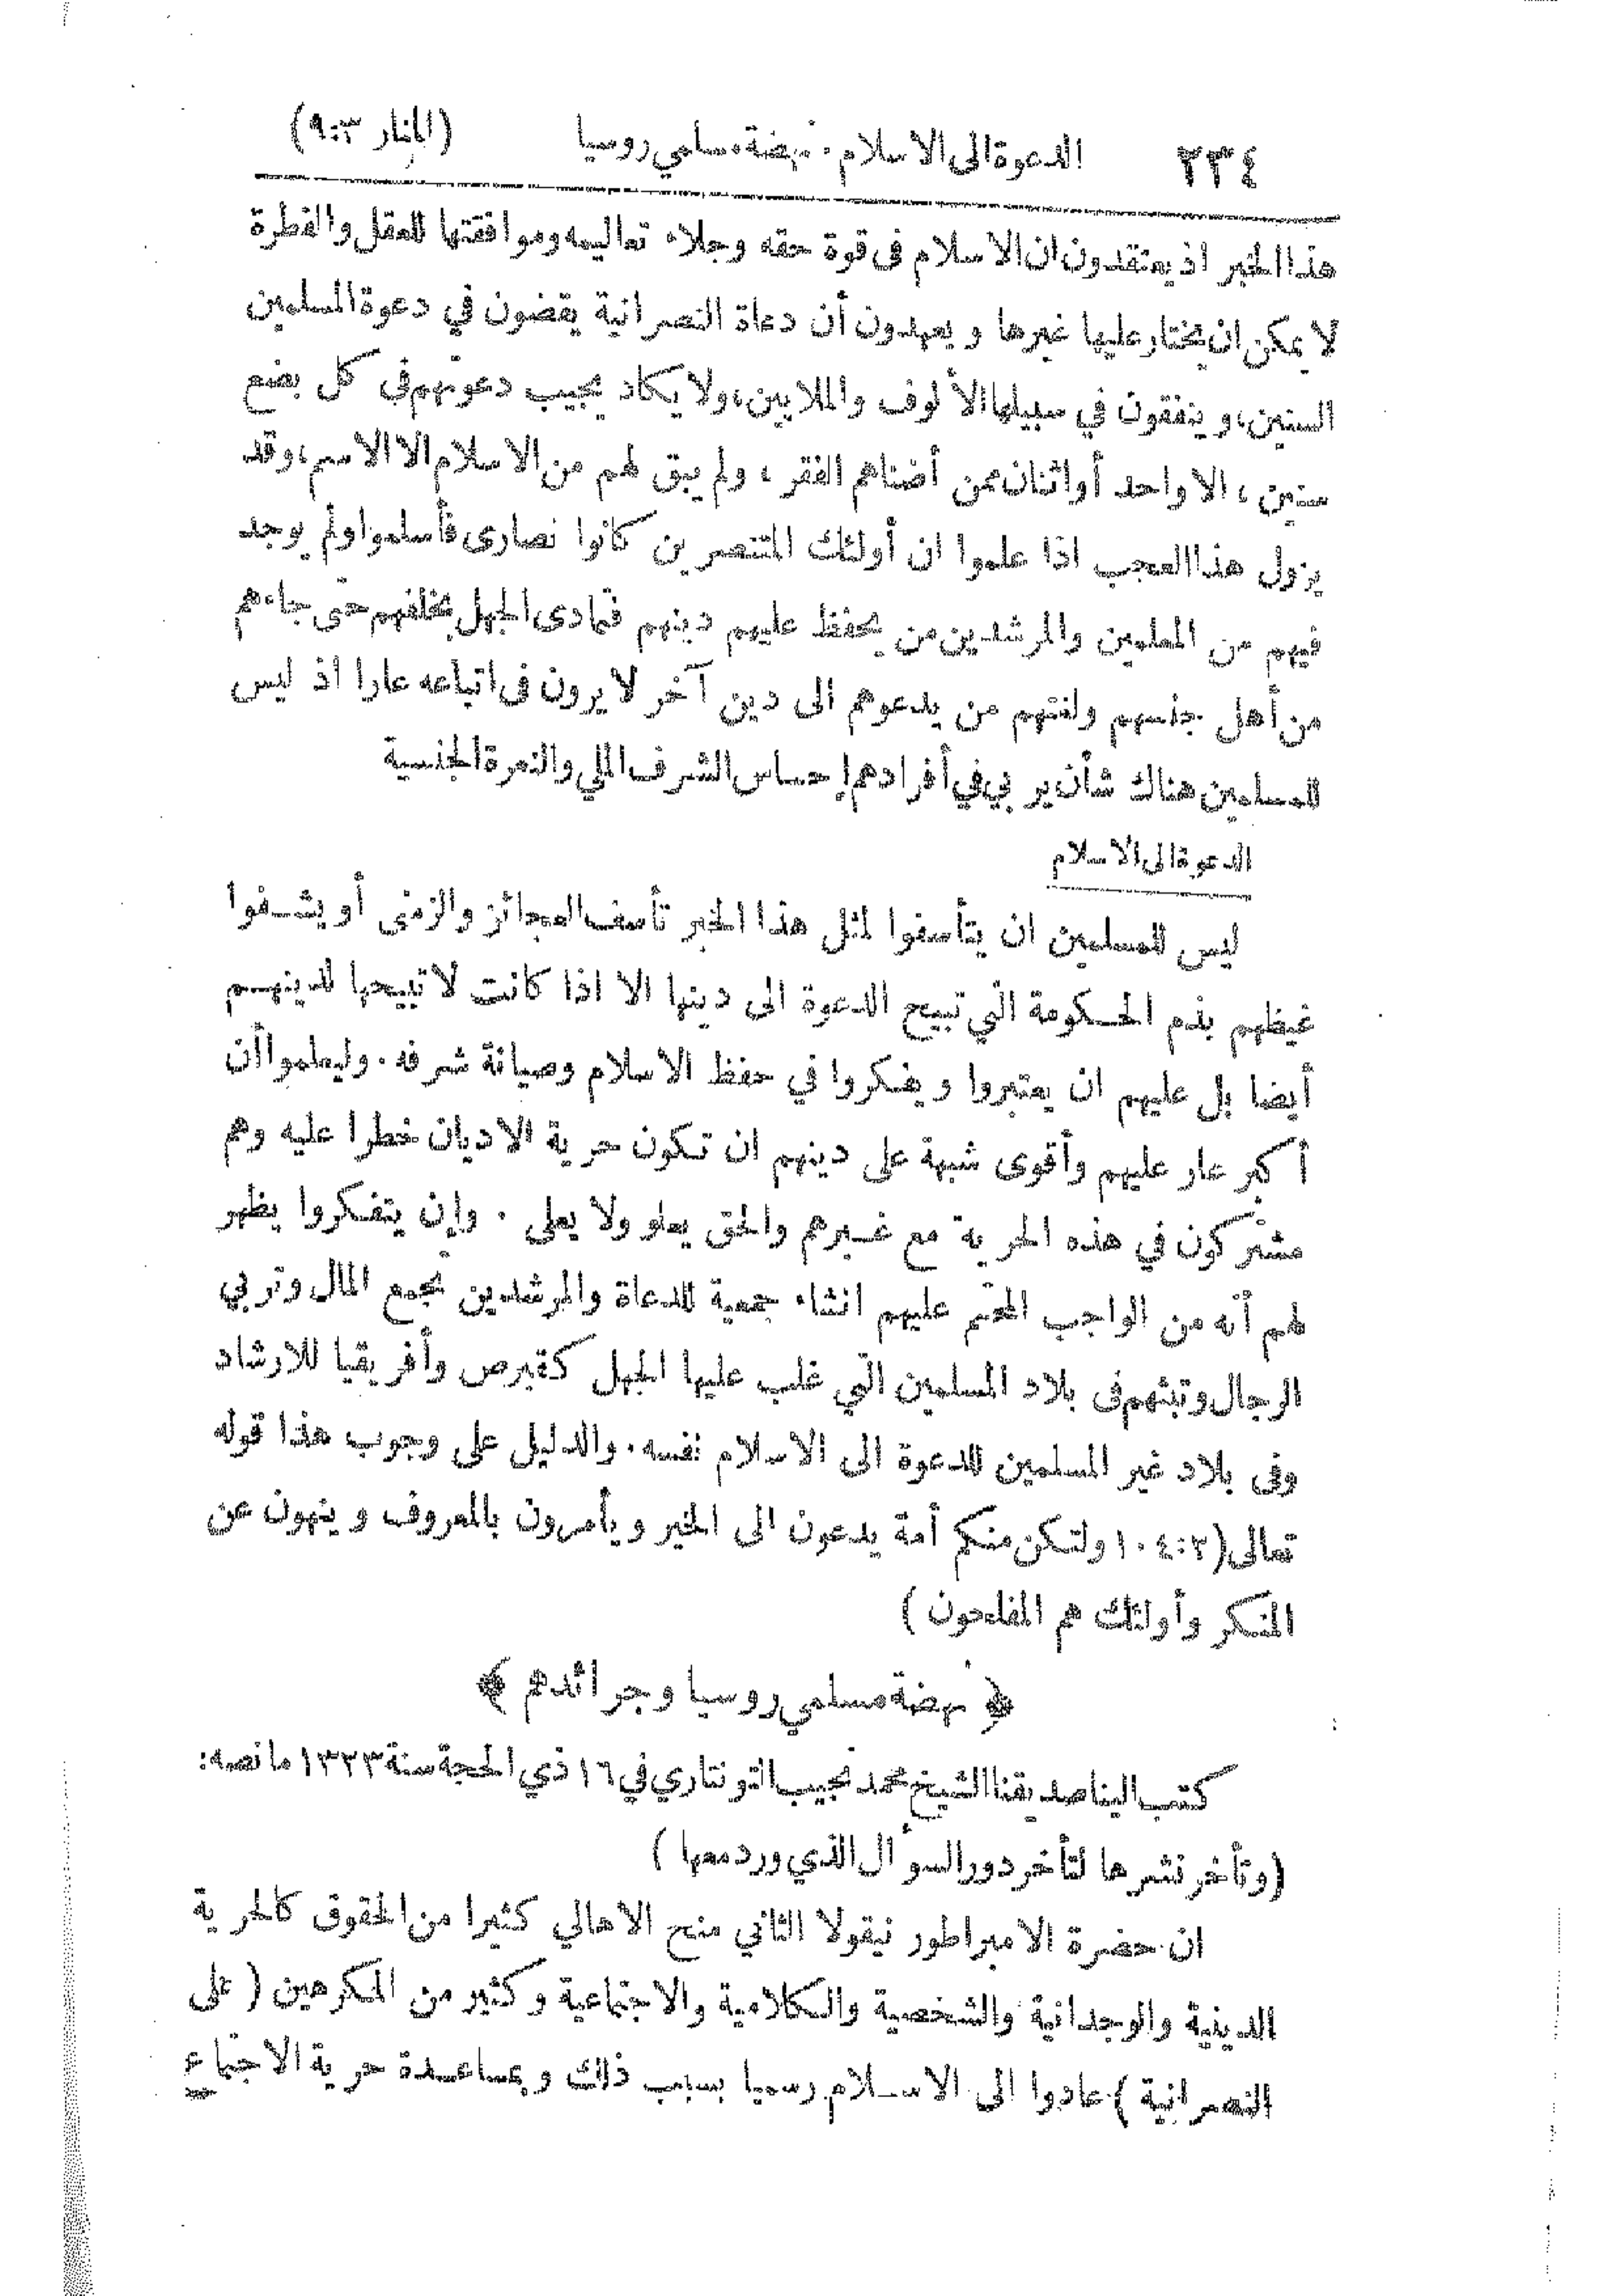 ٢٣٤ الدعوة الى الاسلام . نهضة مسلمي روسيا (المنار ٣:٩)
هذا الخبر اذ يعتقدون ان الاسلام فى قوة حقه وجلاء تعاليمه وموافقتها للعقل والفطرة
لا يمكن ان يختار عليها غيرها ويعهدون أن دعاة النصرانية يقضون في دعوة المسلمين
السنين، وينفقون في سبيلها الألوف والملايين، ولا يكاد يجيب دعوتهم فى كل بضع
سنين ، الا واحد أو اثنان ممن أضناهم الفقر ، ولم يبق لهم من الاسلام الا الاسم، وقد
يزول هذا العجب اذا علموا ان أولئك المتنصرين كانوا نصارى فأسلموا ولم يوجد
فيهم من المعلمين والمرشدين من يحفظ عليهم دينهم فتمادى الجهل بخلفهم حتى جاءهم
من أهل جنسهم ولغتهم من يدعوهم الى دين آخر لا يرون فى اتباعه عارا اذ ليس
للمسلمين هناك شأن يربي في أفرادهم إحساس الشرف الملي والنعرة الجنسية
الدعوة الى الاسلام
ليس للمسلمين ان يتأسفوا لمثل هذا الخبر تأسف العجائز والزمنى أو يشفوا
غيظهم بذم الحكومة التي تبيح الدعوة الى دينها الا اذا كانت لا تبيحها لدينهم
أيضا بل عليهم ان يعتبروا ويفكروا في حفظ الاسلام وصيانة شرفه . وليعلموا أن
أكبر عار عليهم وأقوى شبهة على دينهم ان تكون حرية الاديان خطرا عليه وهم
مشتركون في هذه الحرية مع غيرهم والحق يعلو ولا يعلى . وإن يتفكروا يظهر
لهم أنه من الواجب المحتم عليهم انشاء جمعية للدعاة والمرشدين تجمع المال وتربي
الرجال وتبثهم فى بلاد المسلمين التي غلب عليها الجهل كقبرص وأفريقيا للارشاد
وفى بلاد غير المسلمين للدعوة الى الاسلام نفسه . والدليل على وجوب هذا قوله
تعالى (٣:١٠٤ ولتكن منكم أمة يدعون الى الخير ويأمرون بالمعروف وينهون عن
المنكر وأولئك هم المفلحون )
﴿ نهضة مسلمي روسيا وجرائدهم ﴾
كتب الينا صديقنا الشيخ محمد نجيب التونتاري في ١٦ ذي الحجة سنة ١٣٢٣ ما نصه :
(وتأخر نشرها لتأخر دور السؤال الذي ورد معها )
ان حضرة الامبراطور نيقولا الثاني منح الاهالي كثيرا من الحقوق كالحرية
الدينية والوجدانية والشخصية والكلامية والاجتماعية وكثير من المكرهين ( على
النصرانية ) عادوا الى الاسلام رسميا بسبب ذلك وبمساعدة حرية الاجتماع